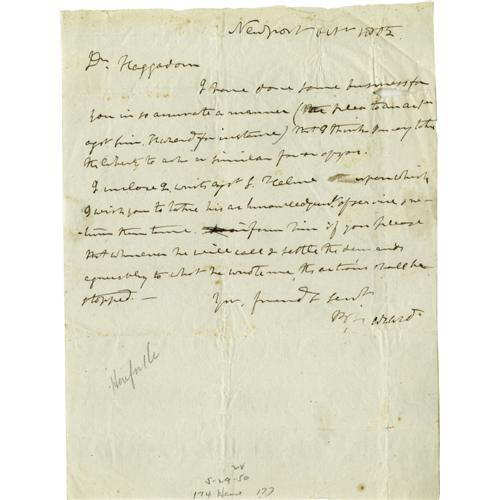 Newport Octr. 1802
Dr. Haggadorn
I have done some business for
you in so accurate a manner (
agst Sim. Hazard for instance) that I think I may take
the liberty to ask a similar favor of you.
I inclose 2 writs agst J. Helme upon which
I wish you to take his acknowledgmt. of service
inform him if you please
that whenever he will call & settle the demands
agreeably to what he wrote me, the actions shall be
stopped. —
Yor. friend & servt.
B. Hazard
5-29-50
174
177